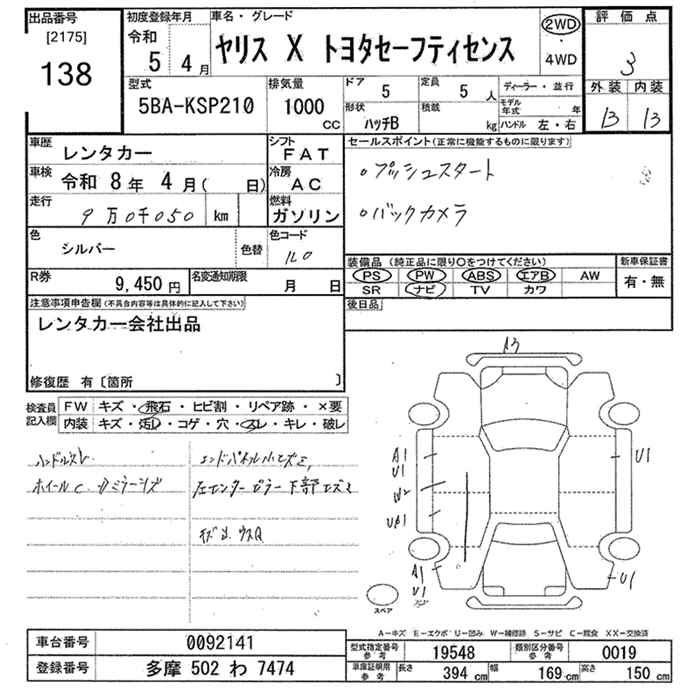 出品番号
[2175]
138
初度登録年月
令和
5 4月
車名・グレード
ヤリス X トヨタセーフティセンス
2WD
・
4WD
評価点
3
外装 内装
B B
型式
5BA-KSP210
排気量
1000
CC
ドア 5
形状 ハッチB
定員 5 人
積載 kg
ディーラー・並行
モデル年式 年
ハンドル 左・右
車歴 レンタカー
シフト FAT
車検 令和 8年 4月( 日)
冷房 AC
走行 9万0千050 km
燃料 ガソリン
色 シルバー
色替
色コード 1L0
R券 9,450円
名変通知期限 月 日
セールスポイント(正常に機能するものに限ります)
○プッシュスタート
○バックカメラ
装備品(純正品に限り○をつけてください)
新車保証書
PS PW ABS エアB AW
SR ナビ TV カワ
有・無
後日品
注意事項申告欄(不具合内容等は具体的に記入して下さい)
レンタカー会社出品
修復歴 有〔箇所 〕
検査員記入欄
FW キズ・飛石・ヒビ割・リペア跡・×要
内装 キズ・汚れ・コゲ・穴・スレ・キレ・破レ
ハンドルスレ
ホイールC
A3
A1
U1
W2
A1
U1
U1
U1
スペア
A-キズ E-エクボ U-凹み W-補修跡 S-サビ C-腐食 XX-交換済
車台番号 0092141
登録番号 多摩 502 わ 7474
型式指定番号参考 19548
類別区分番号参考 0019
車庫証明用参考 長さ 394 cm 幅 169 cm 高さ 150 cm